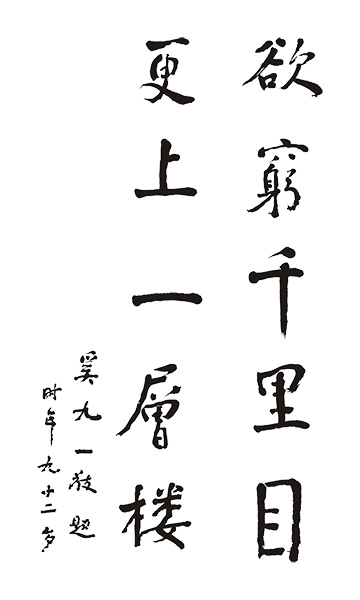 欲窮千里目
更上一層楼
奚九一敬题
时年九十二岁